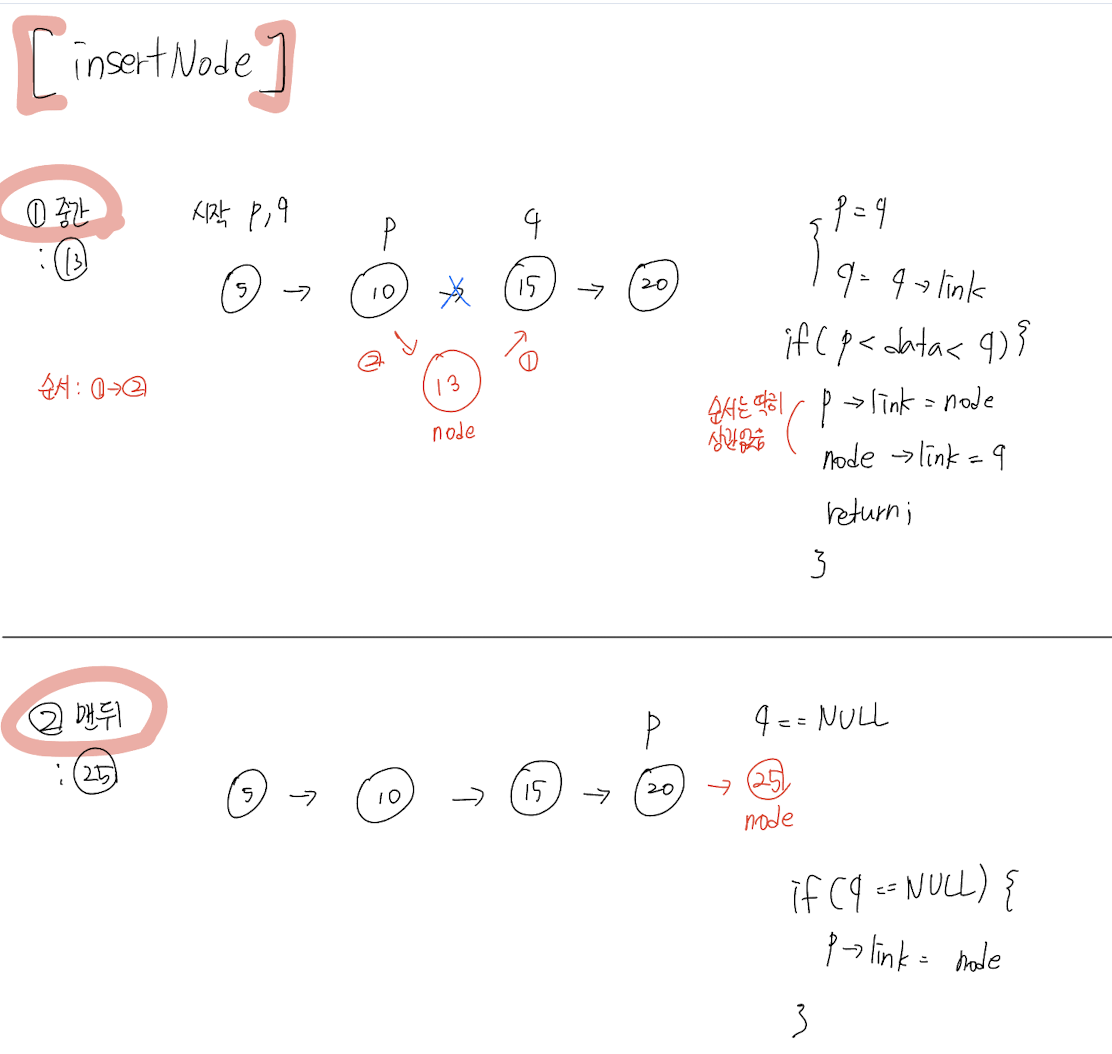 [insertNode]
① 중간
: 13
시작 p, q
p
q
5 → 10 → 15 → 20
② ①
13
node
순서 : ①→②
p = q
q = q → link
if( p < data < q) {
순서는 딱히
상관없음
p → link = node
node → link = q
return;
}
② 맨뒤
: 25
p
q == NULL
5 → 10 → 15 → 20 → 25
node
if (q == NULL) {
p → link = node
}